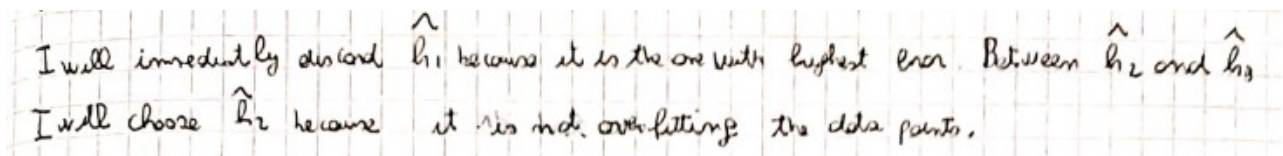 I will immediatly discard ĥ₁ because it is the one with highest error. Between ĥ₂ and ĥ₃
I will choose ĥ₂ because it is not overfitting the data points.